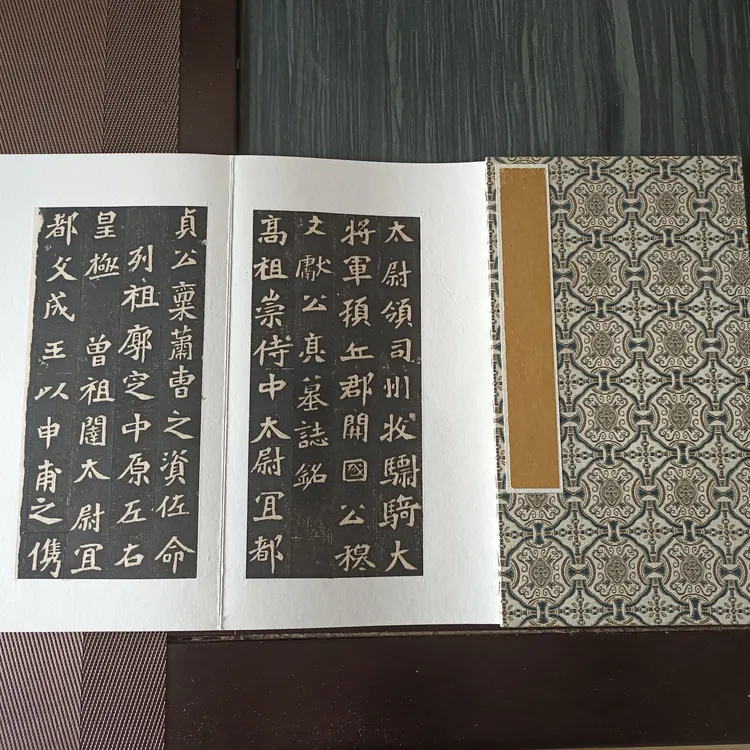 太尉領司州牧驃騎大
將軍頓丘郡開國公穆
文獻公亮墓誌銘
高祖崇侍中太尉冝都
貞公稟蕭曹之資佐命
列祖廓定中原左右
皇極 曾祖闥太尉冝
都文成王以申甫之儁